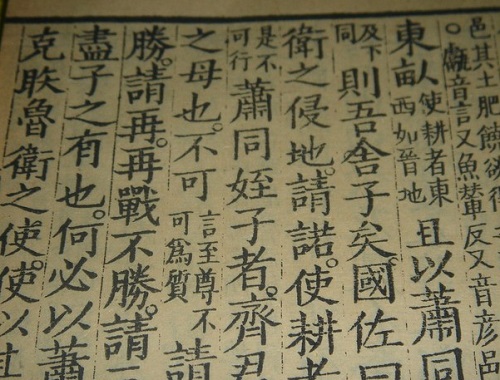 邑其土肥饒欲
。甗音言又魚輦反又音彥邑
東畝使耕者東西如晉地且以蕭同
及下同則吾舍子矣。國佐曰
衛之侵地。請諾。使耕者
是不可行蕭同姪子者。齊君
之母也。不可言至尊不可爲質請
勝。請再。再戰不勝。請
盡子之有也。何必以蕭
克眣魯衛之使。使以其